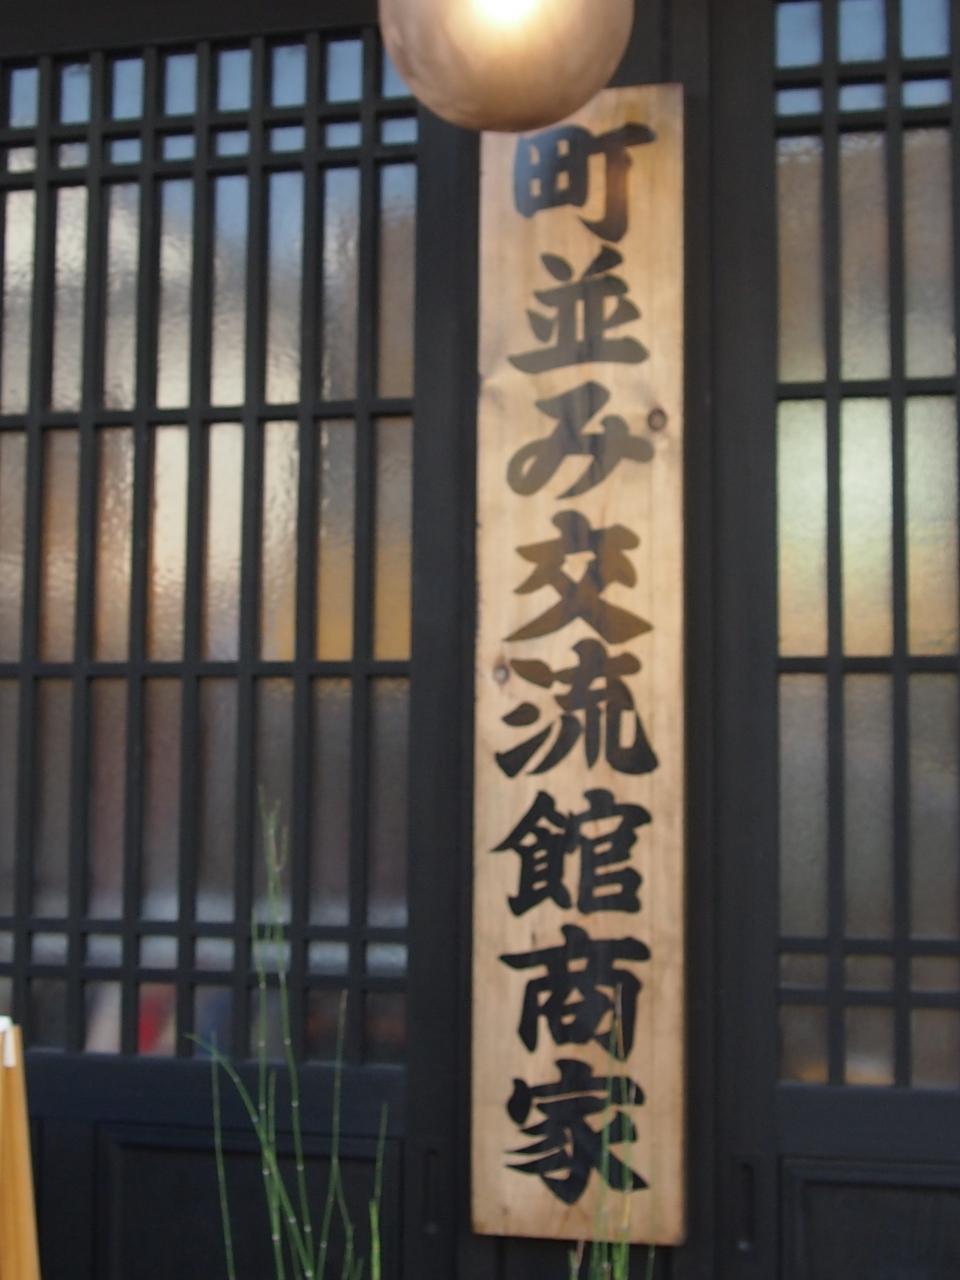 町並み交流館商家